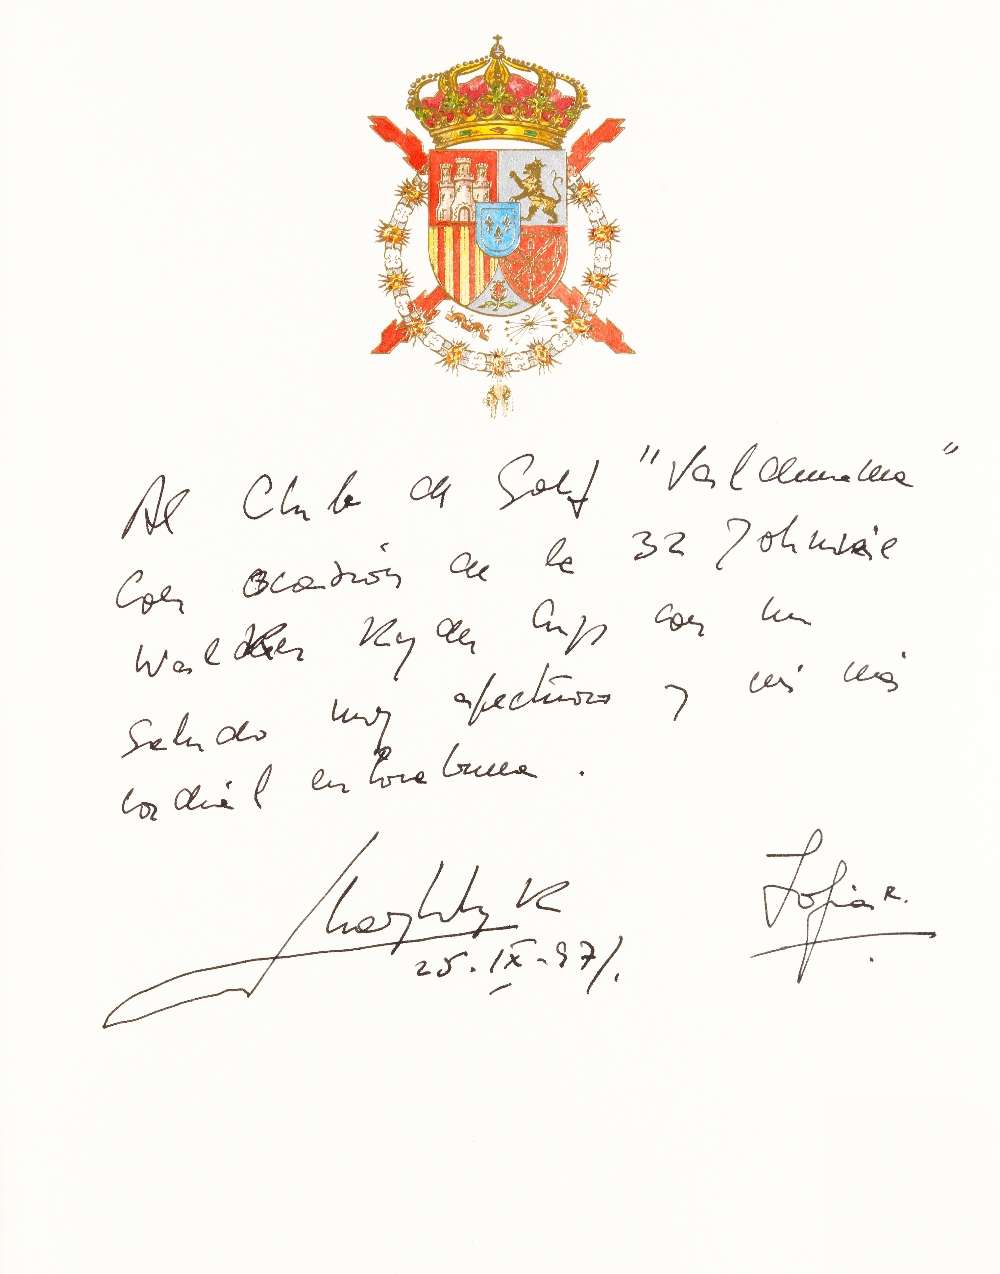 Al Club de Golf "Valderrama"
Con ocasión de la 32 Johnnie
Walker Ryder Cup con un
saludo muy afectuoso y mi más
cordial enhorabuena.
Juan Carlos R
Sofía R.
25.IX.97/.